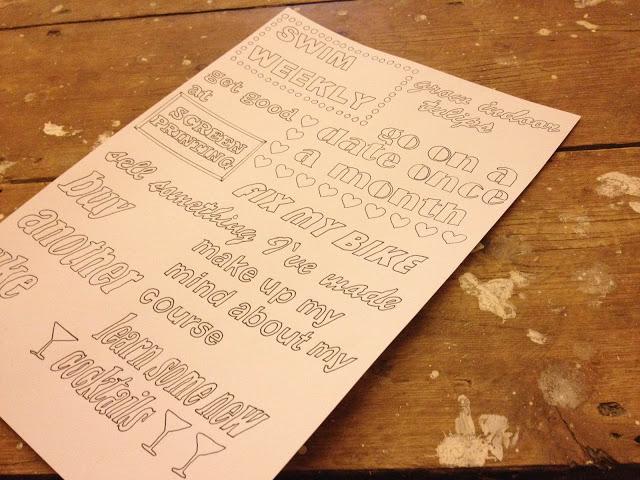 SWIM
WEEKLY
grow indoor
tulips
get good
at
SCREEN
PRINTING
go on a
date once
a month
FIX MY BIKE
sell something I've made
buy
another
make up my
mind about my
course
learn some new
cocktails